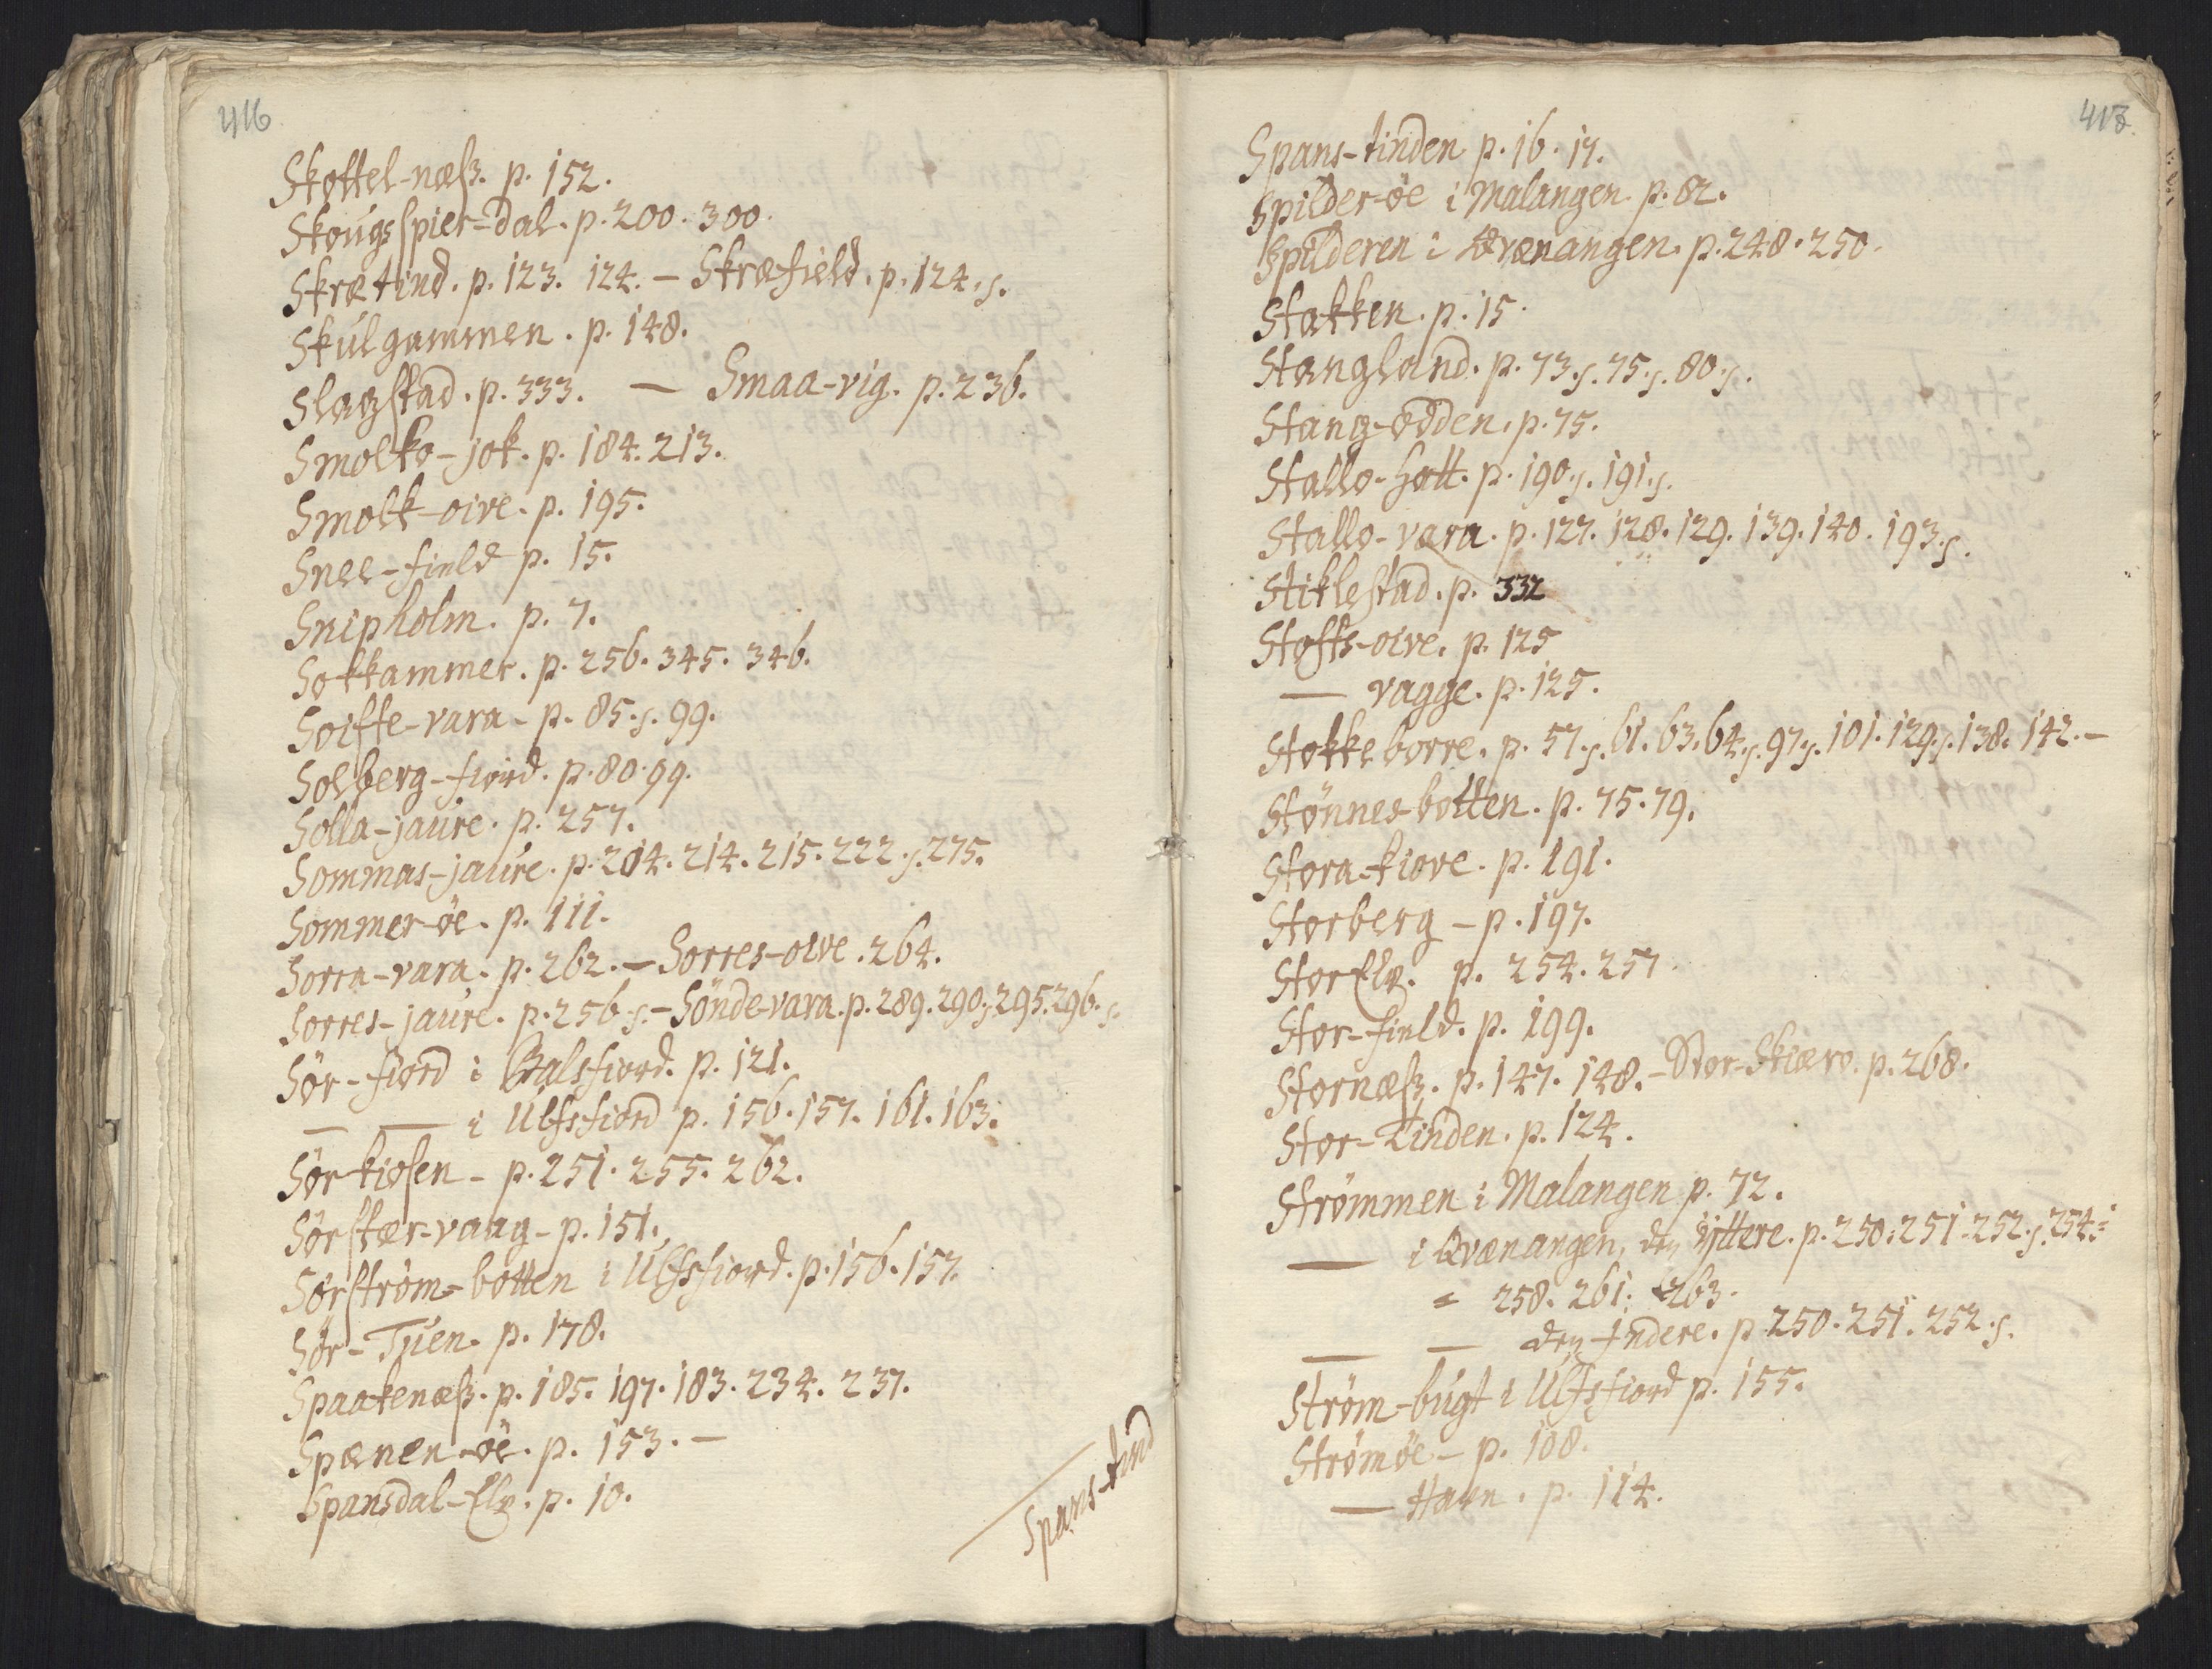 416
Skottel-næss. p. 152.
Skougs spier-dal. p. 200. 300.
Skrætind. p. 123. 124. — Skræfield. p. 124. s.
Skulgammen. p. 148.
Slagstad. p. 333. — Smaa-vig. p. 236.
Smolko-jok. p. 184. 213.
Smolk-oive. p. 195.
Snee-field p. 15.
Snipholm. p. 7.
Sokkammer. p. 256. 345. 346.
Soifte-vara - p. 85. s. 99.
Solberg-fiord. p. 80. 99.
Solla-jaure. p. 257.
Sommas-jaure. p. 204. 214. 215. 222. s. 275.
Sommer-øe. p. 111.
Sorra-vara. p. 262. — Sorres-oive. 264.
Sorres-jaure. p. 256. s. — Söndevara. p. 289. 290. s. 295. 296. s.
Sør-fiord i Balsfiord. p. 121.
— — i Ulfsfiord p. 156. 157. 161. 163.
Sørkiosen - p. 251. 255. 262.
Sørskær-vaag - p. 151.
Sørstrøm-botten i Ulfsfiord. p. 156. 157.
Sør-Tuen. p. 178.
Spaakenæss. p. 185. 197. 183. 234. 237.
Spænen-øe. p. 153. —
Spansdal-Elv. p. 10.
Spans-tind
413.
Spans-tinden p. 16. 17.
Spilder-øe i Malangen. p. 82.
Spilderen i Qvænangen. p. 248. 250.
Stakken. p. 15.
Stangland. p. 73. s. 75. s. 80. s.
Stang-odden. p. 75.
Stallo-hatt. p. 190. s. 191. s.
Stallo-vara. p. 127. 128. 129. 139. 140. 193. s.
Stiklestad. p. 332
Stofts-oive. p. 125
— vagge. p. 125.
Stokkeborre. p. 57. s. 61. 63. 64. s. 97. s. 101. 129. s. 138. 142. —
Stønnesbotten. p. 75. 79.
Stora-kiove. p. 191.
Storberg - p. 197.
StorElv. p. 254. 257.
Stor-field. p. 199.
Stornæss. p. 147. 148. - Stor-Skiærv. p. 268.
Stor-Tinden. p. 124.
Strømmen i Malangen p. 72.
— i Qvænangen, den Ÿttere. p. 250. 251. 252. s. 254. =
= 258. 261. 263.
— — den Indere. p. 250. 251. 252. s.
Strøm-bugt i Ulfsfiord p. 155.
Strømøe - p. 108.
— Havn. p. 114.